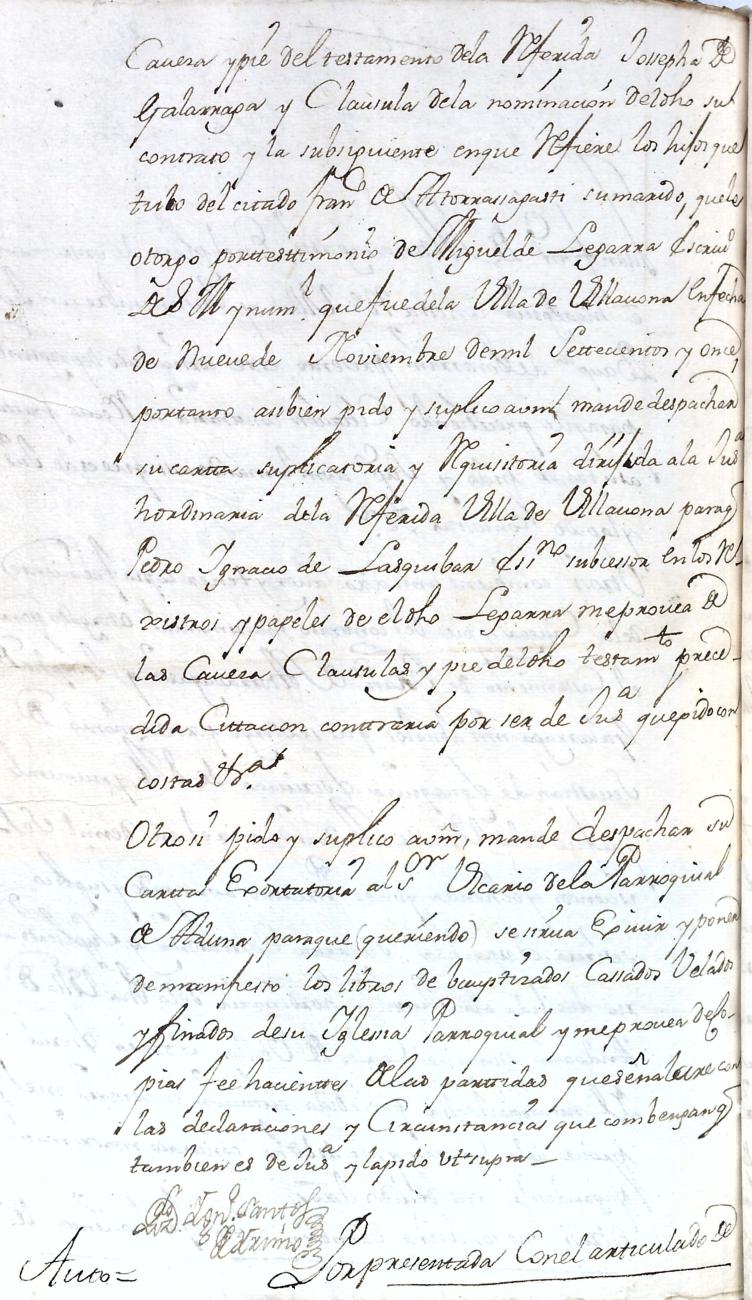 Cavera y pie del testamento dela Rferida Josepha de
Galarraga y Clausula dela nominacion del dho su
contrato y la subsiguiente en que Rfiere los hijos que
tubo del citado Fran.co de Atorrassagasti su marido, que le
otorgo por testimonio de Miguel de Legarra Escriv.o
de S M y num.l que fue dela Villa de Villavona en fecha
de Nueve de Noviembre de mil Settecientos y once,
por tanto assibien pido y suplico a vm mande despachar
su cartta suplicatoria y Rquisitoria dirijida a la Jus.a
hordinaria dela Rferida Villa de Villavona para q
Pedro Ignacio de Lasquibar Ess.no subcessor en los Re
xistros y papeles de el dho Legarra me provea de
las Cavera Clausulas y pie del dho testam.to prece-
dida Cittacion conttraria por ser de Jus.a que pido con
costas &r.a
Otrosi pido y suplico a vm, mande despachar su
Cartta Exortatoria al s.or Vicario dela Parroquial
de Aduna para que (queriendo) se sirva Exivir y poner
de manifiesto los libros de bauptizados Cassados Velados
y finados de su Iglesia Parroquial y me provea de Co-
pias fee hacientes de las parttidas que señalare con
las declaraciones y Circunstancias que combengan q
tambien es de Jus.a y la pido ut supra
Lizd. Ign.o Santos
Por presentada Con el articulado de
Auto=